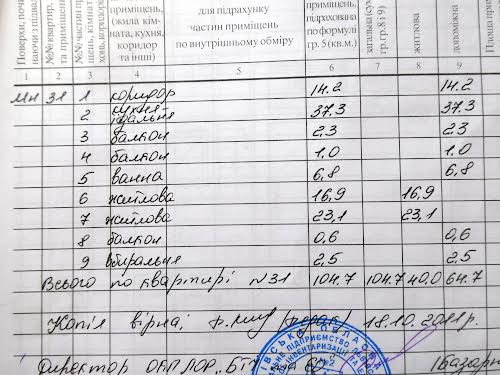 Поверхи, почи-
наючи з підвал
№№ квартир,
та приміщення
№№ частин пр
щень, кімнат
хонь, коридорі
приміщень,
(жила кім-
ната, кухня,
коридор
та інші)
для підрахунку
частин приміщень
по внутрішньому обміру
приміщень,
підрахована
по формулі
гр. 5 (кв.м.)
загальна (су
гр. гр. 8 і 9)
житлова
допоміжна
Площа
1 2 3 4 5 6 7 8 9
Мн 31 1 коридор 14.2 14.2
2 кухня-їдальня 37.3 37.3
3 балкон 2,3 2.3
4 балкон 1,0 1.0
5 ванна 6,8 6,8
6 житлова 16,9 16,9
7 житлова 23,1 23,1
8 балкон 0,6 0,6
9 вбиральня 2,5 2.5
Всього по квартирі №31 104.7 104.7 40.0 64.7
Копія вірна; 18.10.2011р.
Директор ОКП ЛОР „БТІ